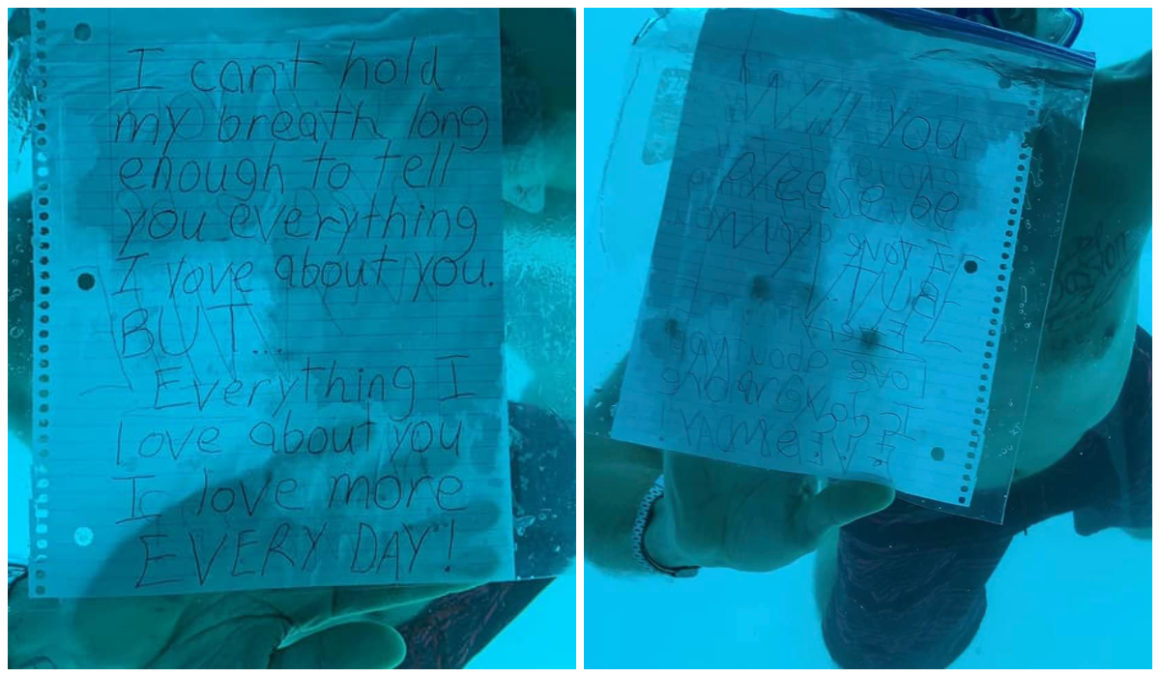 I can't hold
my breath long
enough to tell
you everything
I love about you.
BUT...
Everything I
love about you
I love more
EVERY DAY!
Will you
please be
my